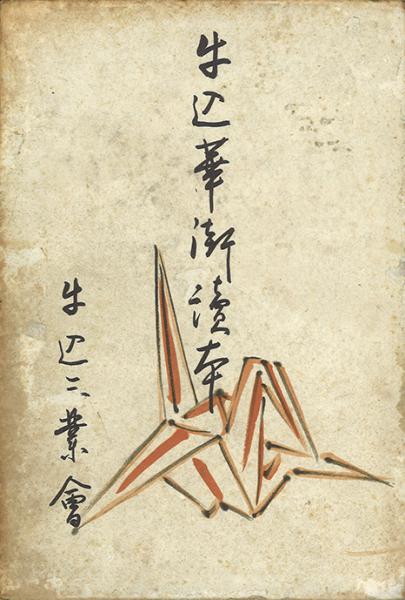 牛込華街讀本
牛込三業會